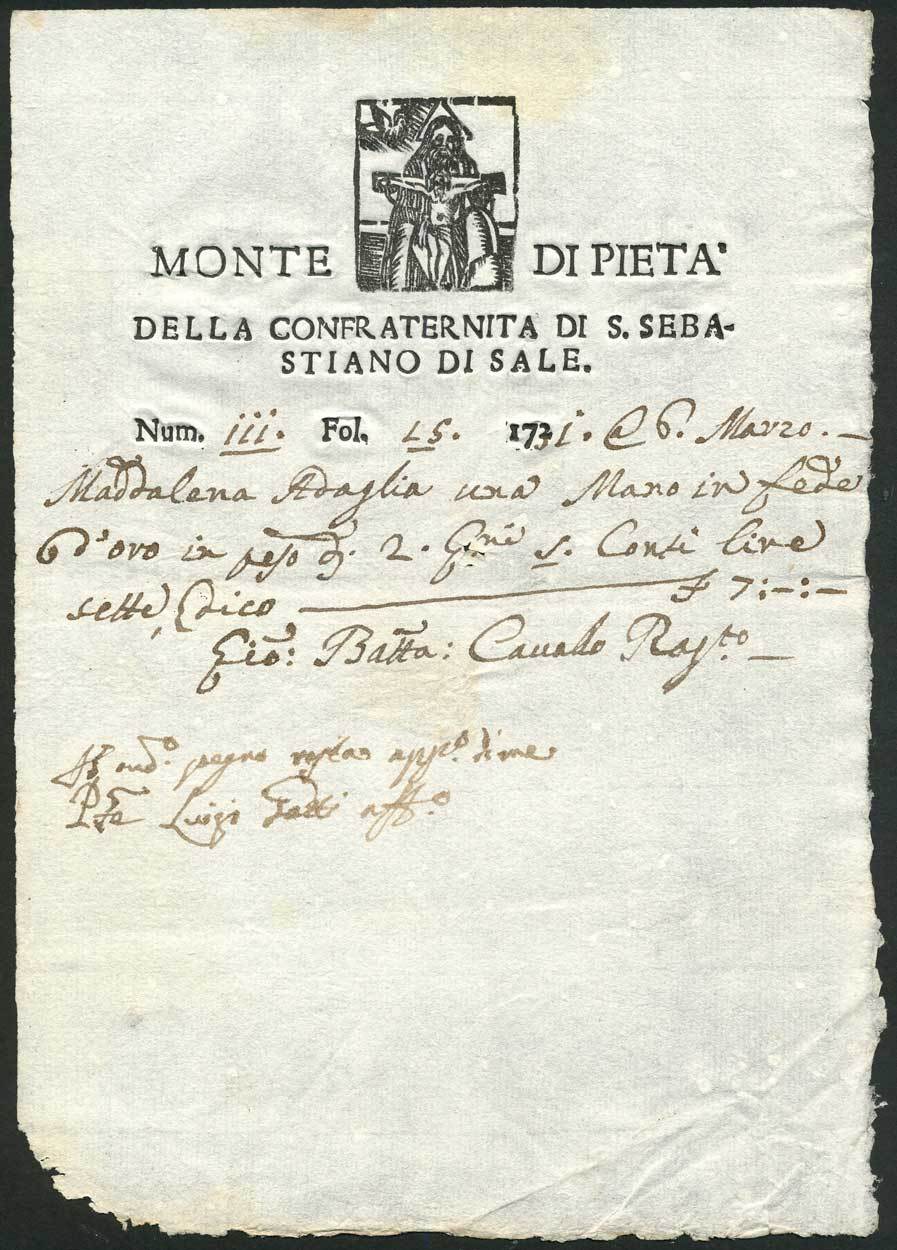 MONTE DI PIETA'
DELLA CONFRATERNITA DI S. SEBA-
STIANO DI SALE.
Num. 111. Fol. 15. 1731. @ 6. Marzo.
Maddalena Adaglia una Mano in fede
d'oro in peso di 2. s. Conti lire
sette, dico — £ 7:-:-
Gio: Batta: Cavallo
pegno resta app.o di me
Luigi Gatti aff.o